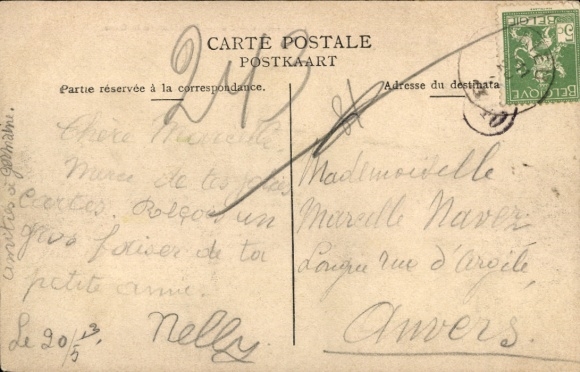 CARTE POSTALE
POSTKAART
Partie réservée à la correspondance.
Adresse du destinata
5c BELGIË
BELGIQUE 5c
243
Chère Marcelle
Merci de tes jolies
cartes. Reçois un
gros baiser de ta
petite amie.
Nelly.
Le 20/5 13
amitiés à Germaine.
Mademoiselle
Marcelle Navez
Longue rue d'Argile
Anvers.